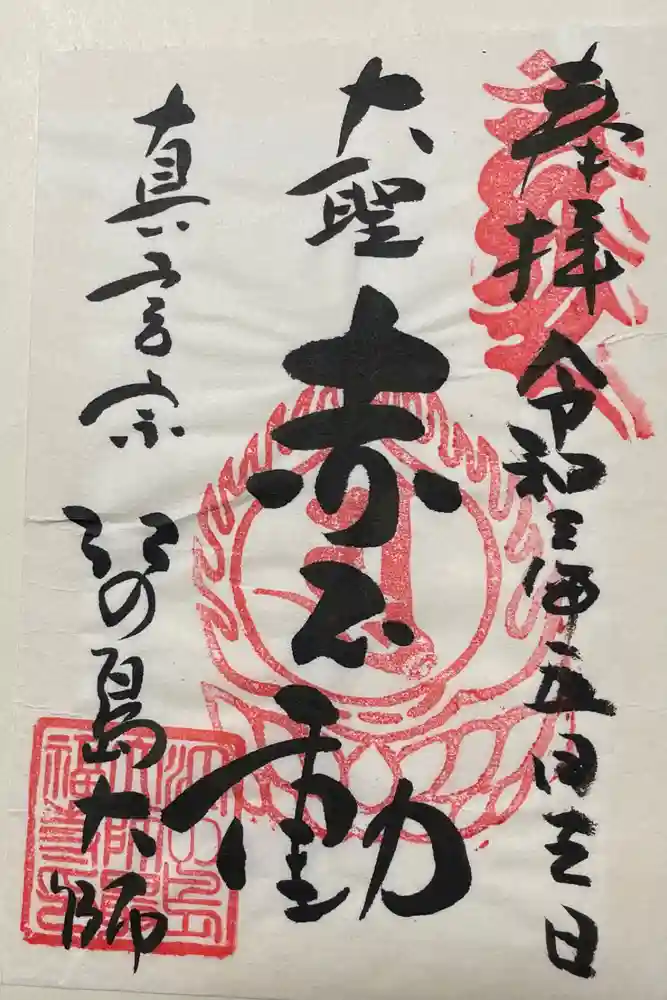 奉拝 令和三年五月三日
大聖
赤不動
真言宗
江の島大師